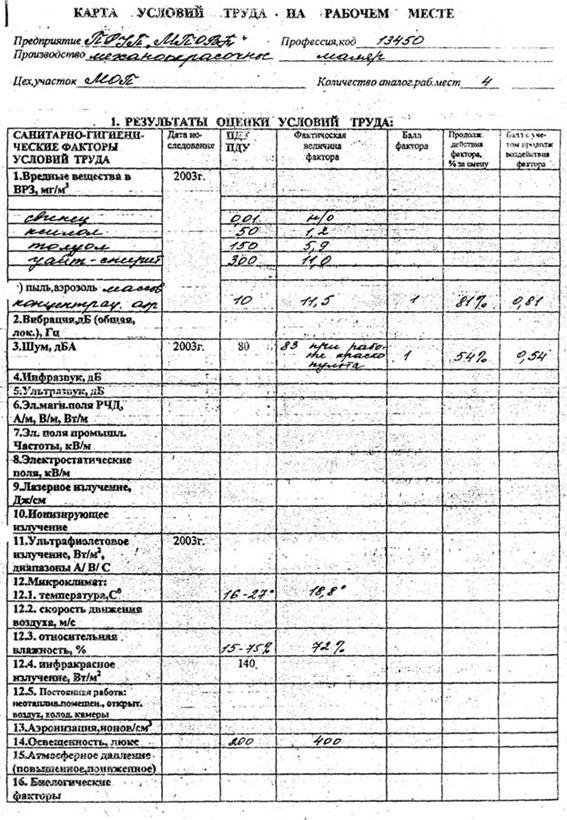 КАРТА УСЛОВИЙ ТРУДА НА РАБОЧЕМ МЕСТЕ
Предприятие ПРУП „МПОВТ" Профессия,код 13450
Производство механосборочное маляр
Цех,участок МОП Количество аналог.раб.мест 4
1. РЕЗУЛЬТАТЫ ОЦЕНКИ УСЛОВИЙ ТРУДА:
САНИТАРНО-ГИГИЕНИ- Дата ис- ПДК Фактическая Балл Продолж. Балл с уче-
ЧЕСКИЕ ФАКТОРЫ следования ПДУ величина фактора действия том продолж
УСЛОВИЙ ТРУДА фактора фактора, воздействия
% за смену фактора
1.Вредные вещества в 2003г.
ВРЗ, мг/м³
свинец 0,01 н/о
ксилол 50 1,2
толуол 150 5,9
уайт-спирит 300 11,0
) пыль,аэрозоль массов
концентрац. аэр 10 11,5 1 81% 0,81
2.Вибрация,дБ (общая,
лок.), Гц
3.Шум, дБА 2003г. 80 83 при рабо-
те краско 1 54% 0,54
пульта
4.Инфразвук, дБ
5.Ультразвук, дБ
6.Эл.магн.поля РЧД,
А/м, В/м, Вт/м
7.Эл. поля промышл.
Частоты, кВ/м
8.Электростатические
поля, кВ/м
9.Лазерное излучение,
Дж/см
10.Ионизирующее
излучение
11.Ультрафиолетовое 2003г.
излучение, Вт/м²,
диапазоны А/ В/ С
12.Микроклимат:
12.1. температура,С⁰ 16-27° 18,8°
12.2. скорость движения
воздуха, м/с
12.3. относительная
влажность, % 15-75% 72%
12.4. инфракрасное 140
излучение, Вт/м²
12.5. Постоянная работа:
неотаплив.помещен., открыт.
воздух, холод. камеры
13.Аэронизация,ионов/см³
14.Освещенность, люкс 200 400
15.Атмосферное давление
(повышенное,пониженное)
16. Биологические
факторы